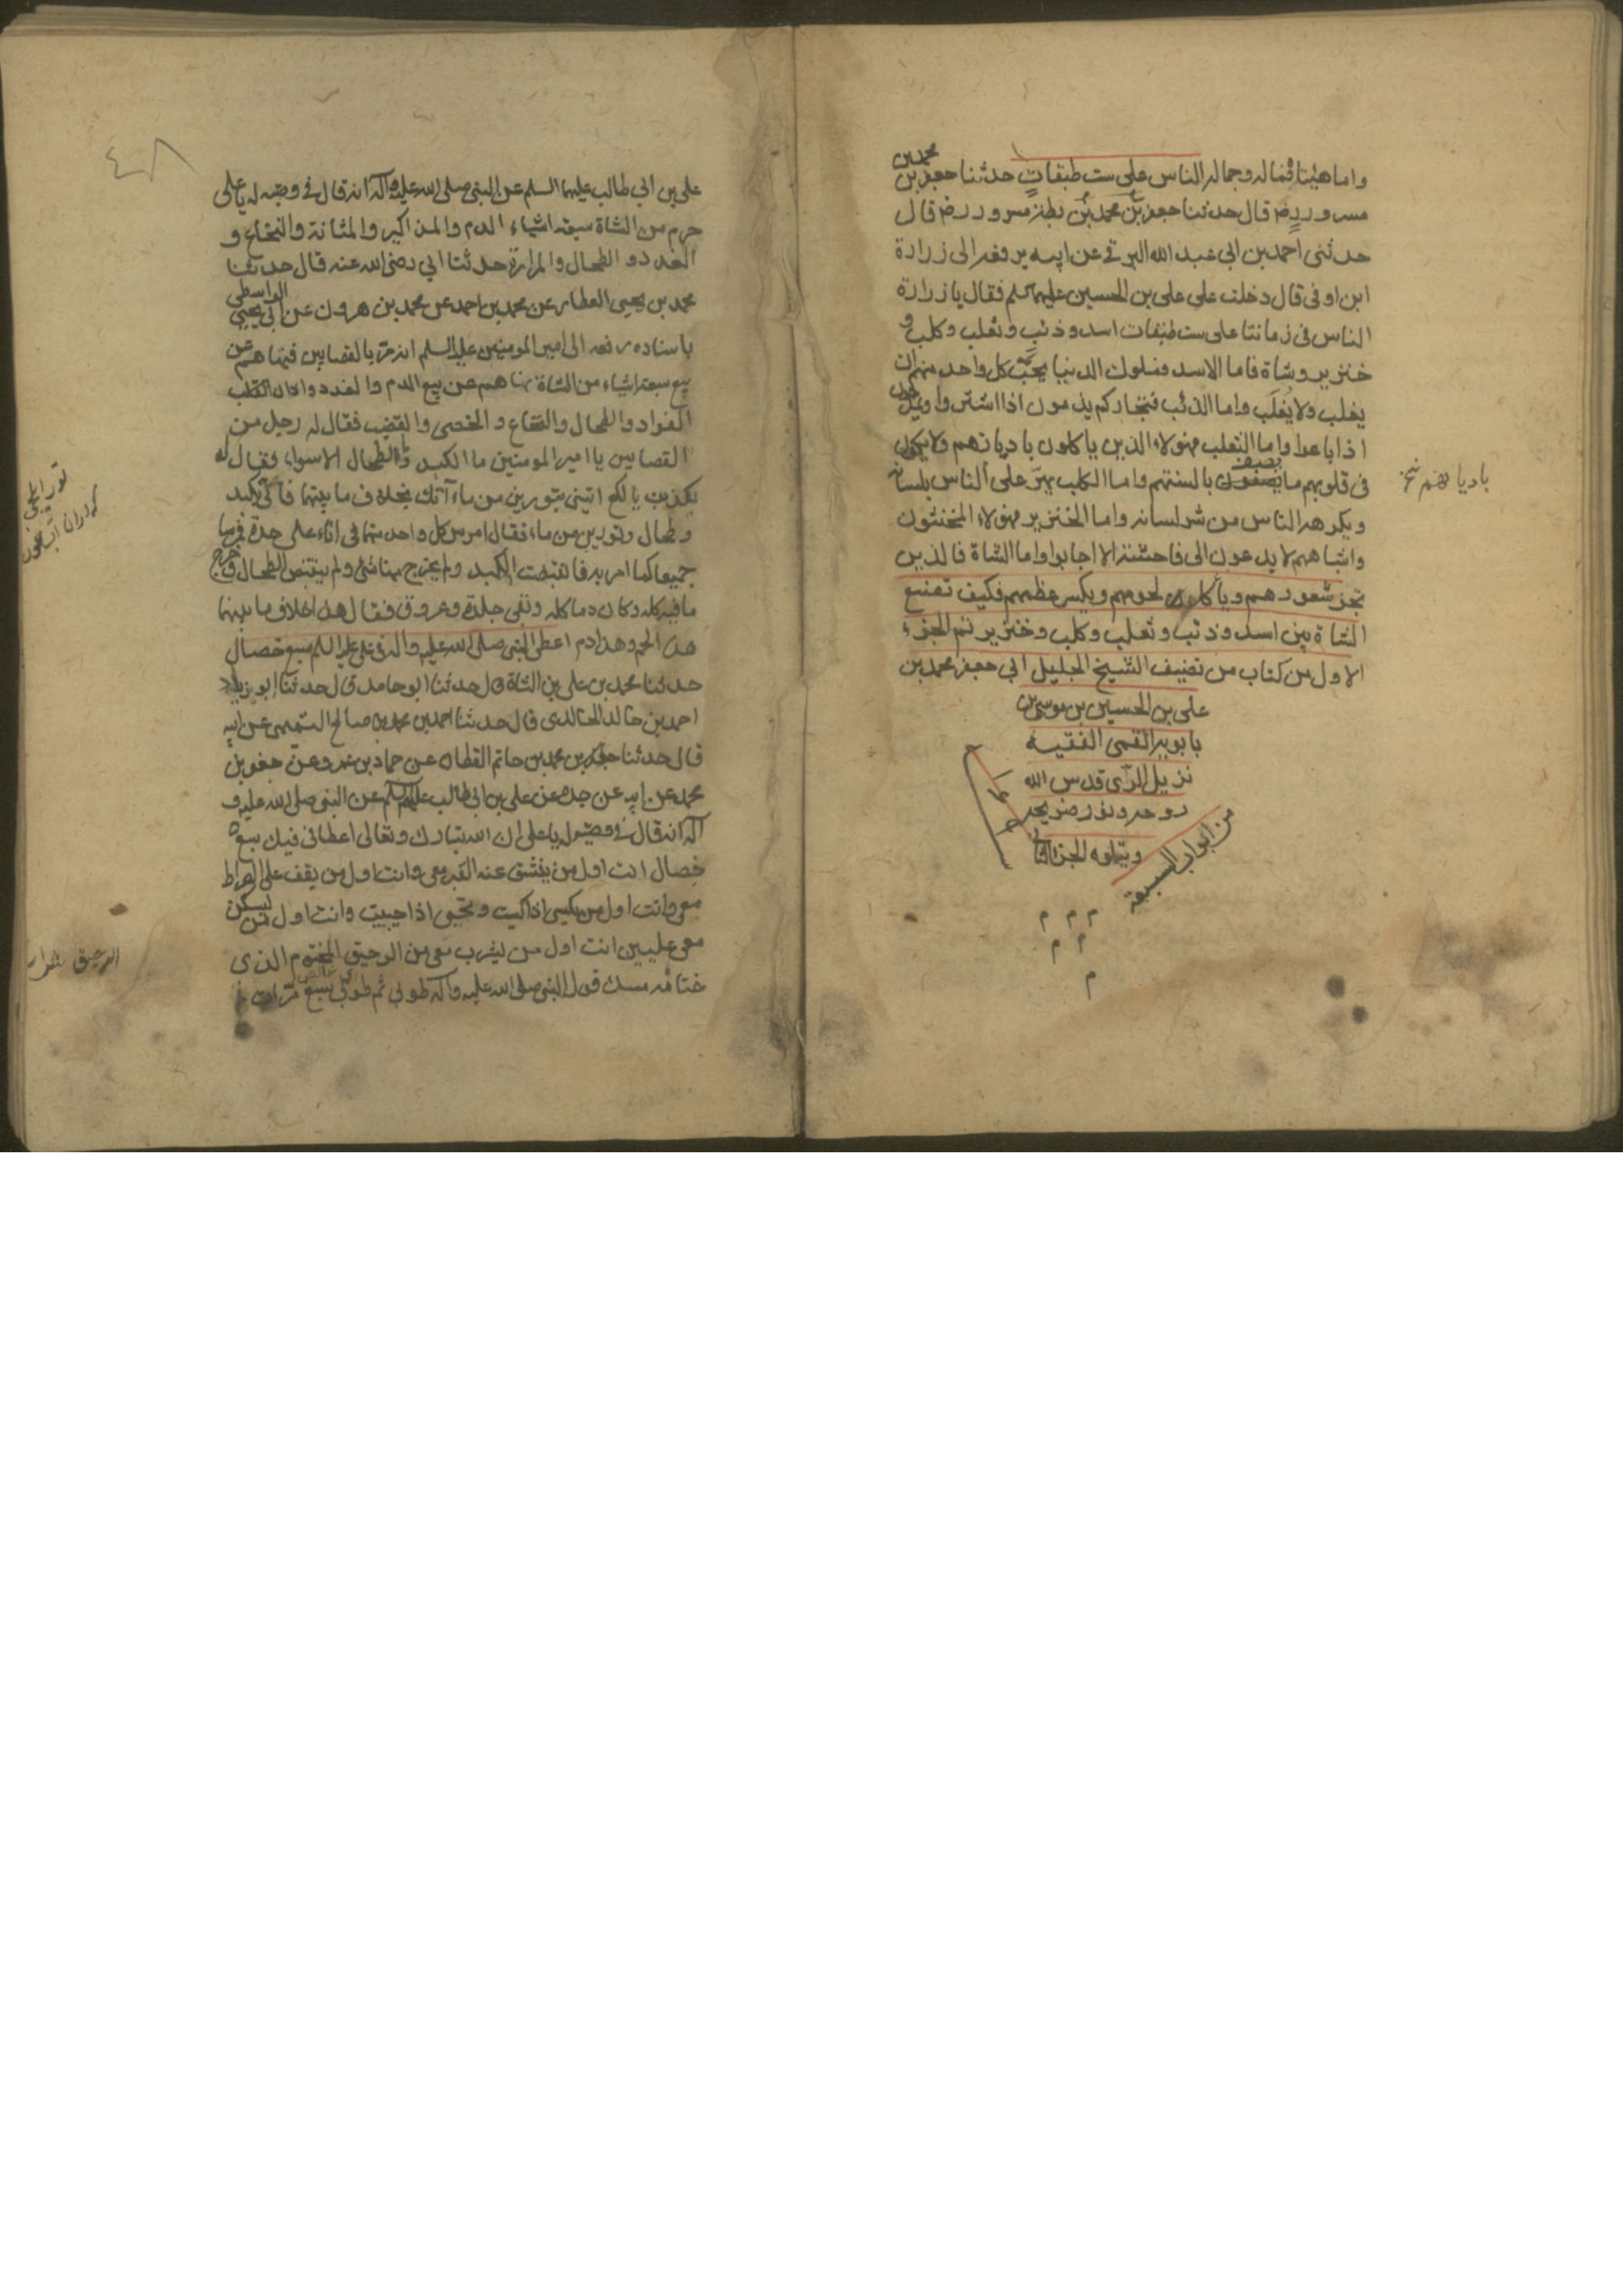 واما هيئنا فماله وجماله الناس على ست طبقات حدثنا جعفر بن
محمد بن
مسرور رض قال حدثنا جعفر بن محمد بن بطة مسرور رض قال
حدثنى احمد بن ابى عبد الله البرقى عن ابيه يرفعه الى زرارة
ابن اوفى قال دخلت على على بن الحسين عليهما السلم فقال يا زرارة
الناس فى زماننا على ست طبقات اسد وذئب وثعلب وكلب و
خنزير وشاة فاما الاسد فملوك الدنيا يحب كل واحد منهم ان
يغلب ولا يغلب واما الذئب فتجاركم يذمون اذا اشتروا ويمدحون
اذا باعوا واما الثعلب فهولاء الذين ياكلون باديانهم ولا يكون
فى قلوبهم ما يصفون بالسنتهم واما الكلب يهر على الناس بلسانه
باديانهم نخ
ويكرهه الناس من شر لسانه واما الخنزير فهولاء المخنثون
واشباههم لا يدعون الى فاحشة الا اجابوا واما الشاة فالذين
تجز شعورهم وياكلون لحومهم ويكسر عظمهم فكيف تصنع
الشاة بين اسد وذئب وثعلب وكلب وخنزير تم الجزء
الاول من كتاب من تصنيف الشيخ الجليل ابى جعفر محمد بن
على بن الحسين بن موسى بن
بابويه القمى الفقيه
نزيل الرى قدس الله
روحه ونور ضريحه
ويتلوه الجزء الثانى
من ابواب السبعة
م م م
م م
م
٤٨
على بن ابى طالب عليهما السلم عن النبى صلى الله عليه وآله انه قال فى وصيته له يا على
حرم من الشاة سبعة اشياء الدم والمذاكير والمثانة والنخاع و
الغدد و الطحال والمرارة حدثنا ابى رضى الله عنه قال حدثنا
محمد بن يحيى العطار عن محمد بن احمد عن محمد بن هرون عن ابى يحيى
الواسطى
باسناده رفعه الى امير المومنين عليه السلم انه مر بالقصابين فنهاهم عن
بيع سبعة اشياء من الشاة نهاهم عن بيع الدم والغدد واذان القلب
الفواد والطحال والنخاع و الخصى والقضيب فقال له رجل من
القصابين يا امير المومنين ما الكبد والطحال الا سواء فقال له
كذبت يا لكع اتينى بتورين من ماء آتك بخلاف ما بينهما فاتى بكبد
وطحال وتورين من ماء فقال امرس كل واحد منهما فى اناء على حدة فمرسا
جميعا كما امر به فانقبضت الكبد ولم يخرج منها شئ ولم ينقبض الطحال وخرج
ما فيه كله وكان دما كله وبقى جلدة وعروق فقال هذا خلاف ما بينهما
هذا لحم وهذا دم اعطى النبى صلى الله عليه وآله فى على عليه السلم سبع خصال
حدثنا محمد بن على بن الشاة قال حدثنا ابو حامد قال حدثنا ابو يزيد
احمد بن خالد الخالدى قال حدثنا احمد بن محمد بن صالح التميمى عن ابيه
قال حدثنا محمد بن حاتم القطان عن حماد بن عمرو عن جعفر بن
محمد عن ابيه عن جده عن على بن ابى طالب عليهم السلم عن النبى صلى الله عليه و
آله انه قال فى وصيته له يا على ان الله تبارك وتعالى اعطانى فيك سبع
خصال انت اول من ينشق عنه القبر معى وانت اول من يقف على الصراط
معى وانت اول من يكسى اذا كسيت ويحيى اذا حييت وانت اول من يسكن
معى عليين انت اول من يشرب معى من الرحيق المختوم الذى
الرحيق شراب
ختامه مسك قول النبى صلى الله عليه وآله طوبى ثم طوبى سبع مرات